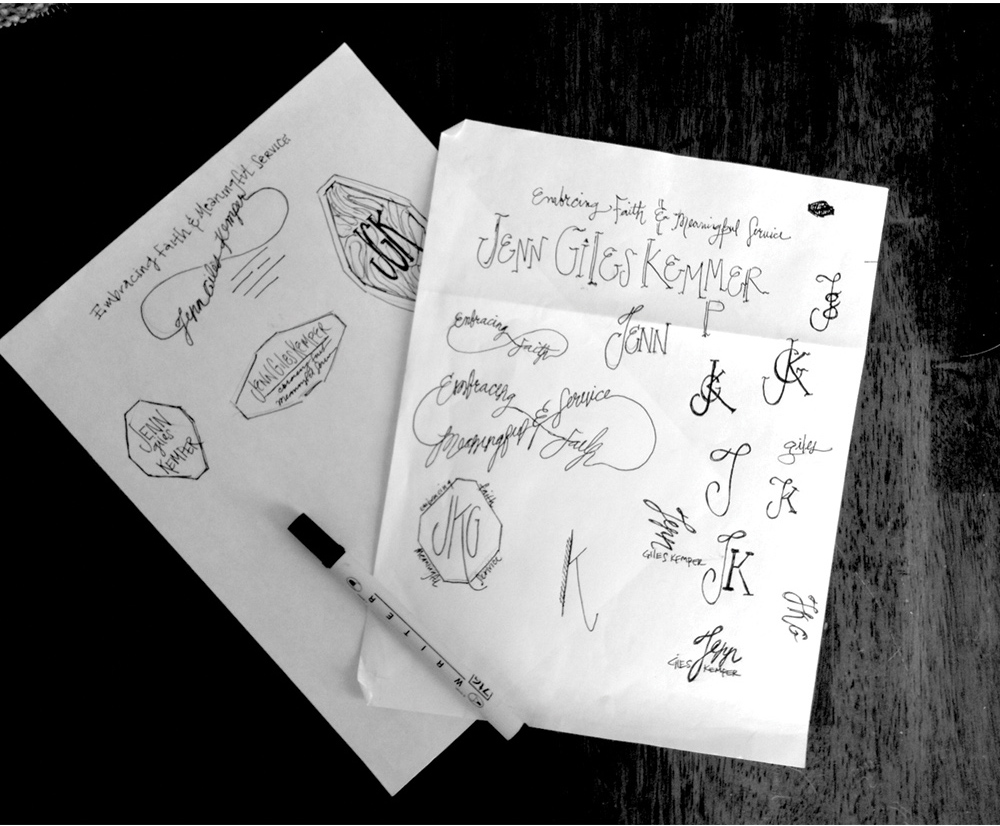 Embracing Faith & Meaningful Service
Jenn Giles Kemper
JGK
JENN GILES KEMPER
JENN
giles
KEMPER
Embrcing Faith & Meaningful Service
JENN GILES KEMMER
P
JENN
Embracing
Faith
Embracing & Service
Meaningful Faith
embracing
faith
JKG
Meaningful
Service
K
JGK
JGK
J
giles
JK
Jenn
GILES KEMPER
JK
JKG
Jenn
GILES KEMPER
WRITER